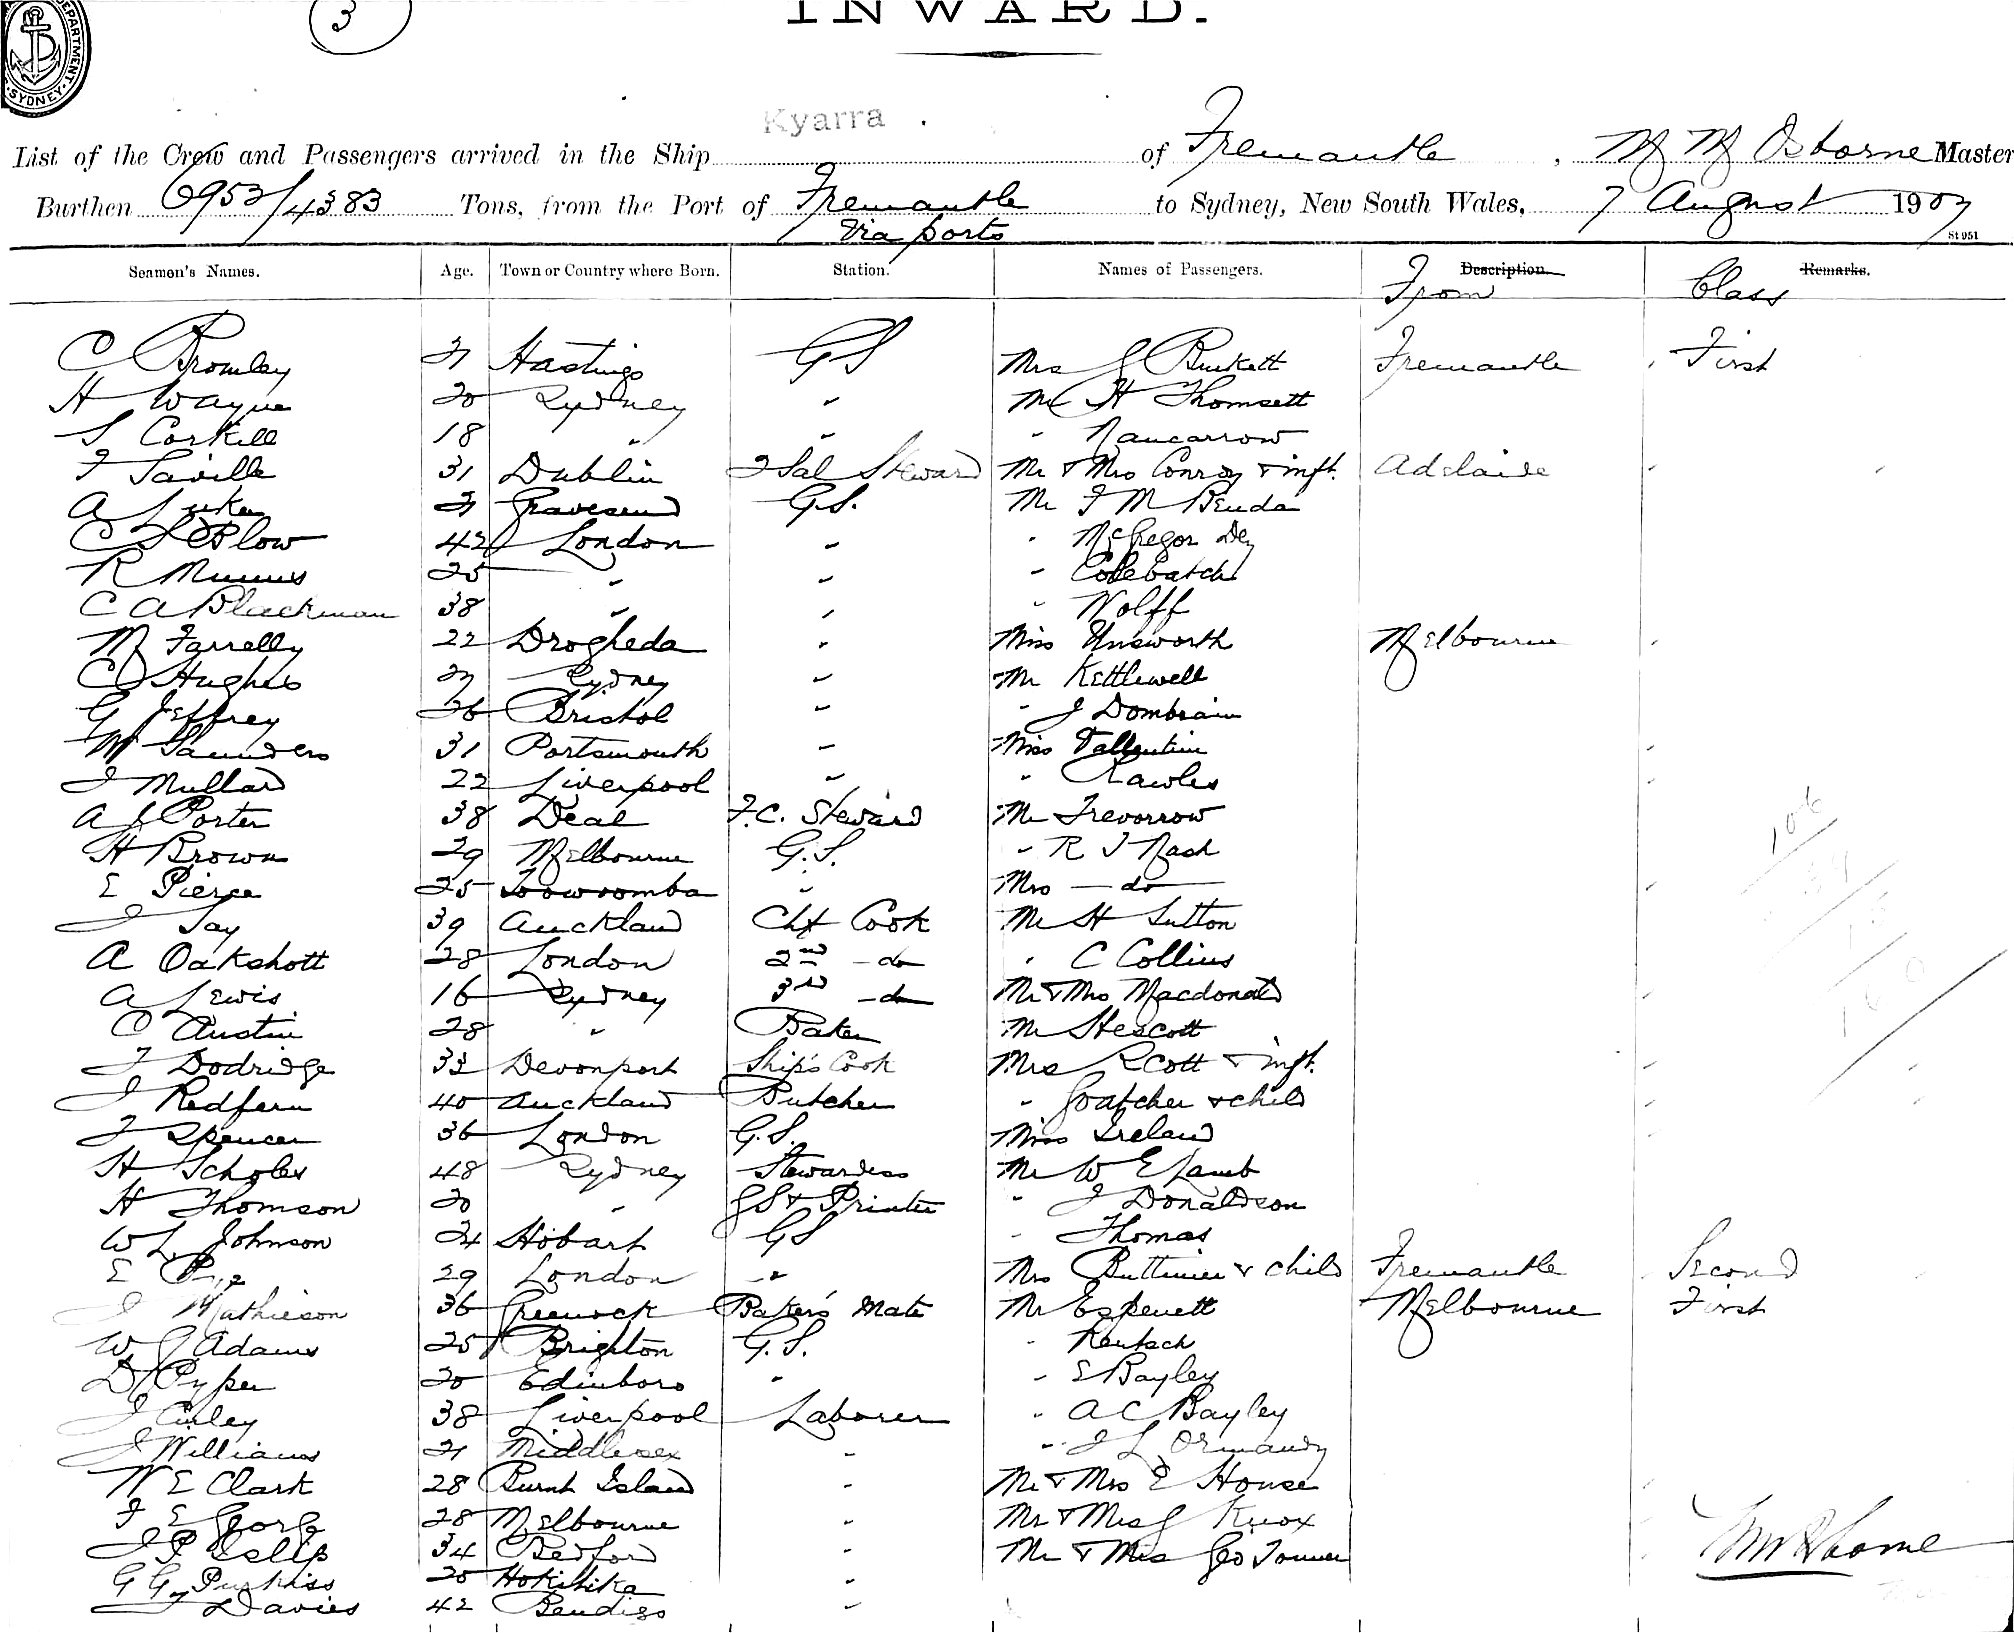 DEPARTMENT
SYDNEY
3
INWARD.
Kyarra
List of the Crew and Passengers arrived in the Ship of Fremantle, M M Osborne Master
Burthen 6953/4383 Tons, from the Port of Fremantle to Sydney, New South Wales, 7 August 1907
Via ports
St 951
Seamen's Names. Age. Town or Country where Born. Station. Names of Passengers. Description. Remarks.
From Class
C Bromley 21 Hastings GS Mrs G Burkett Fremantle First
H Wayne 20 Sydney " Mr H Thomsett
S Corkill 18 " " " Nancarrow
F Saville 31 Dublin 2 Sal Steward Mr & Mrs Conroy & inft. Adelaide
A Luker 21 Gravesend G.S. Mr F M Benda
C L Blow 42 London " " McGregor Dey
R 25 " " " Colebatch
C A Blackman 38 " " " Wolff
M Farrelly 22 Drogheda " Miss Unsworth Melbourne
C Hughes 21 Sydney " Mr Kettlewell
G Jeffrey 26 Bristol " " J Dombrain
M Saunders 31 Portsmouth " Miss Tallentine
J Mullard 22 Liverpool " " Rawles
A J Porter 38 Deal F.C. Steward Mr Trevorrow
H Brown 29 Melbourne G.S. " R J Nash
E Pierce 25 Toowoomba " Mrs — do —
J Jay 39 Auckland Chf Cook Mr H Sutton
A Oakshott 28 London 2nd - do " C Collins
A Lewis 16 Sydney 3rd - do Mr & Mrs Macdonald
C Austin 28 " Baker Mr Hescott
F Dodridge 33 Devonport Ship's Cook Mrs R Cott & inft.
J Redfern 40 Auckland Butcher " Goatcher & child
F Spencer 36 London G.S. Miss Ireland
H Scholes 48 Sydney Stewardess Mr W E Lamb
H Thomson 20 " GS & Printer " J Donaldson
W L Johnson 24 Hobart GS " Thomas
E 29 London " Mrs Buttimer & child Fremantle Second
J Mathieson 36 Greenock Baker's Mate Mr Espenett Melbourne First
W J Adams 25 Brighton G.S. " Rentsch
D Pyper 20 Edinboro " " E Bayley
J Curley 38 Liverpool Laborer " A C Bayley
J Williams 21 Middlesex " " J L Ormandy
W E Clark 28 Burnt Island " Mr & Mrs E House
F E George 28 Melbourne " Mr & Mrs G Knox
J P Islip 34 Bedford " Mr & Mrs Geo Tonner
G G Purkiss 20 Hokitika "
J Davies 42 Bendigo "
106